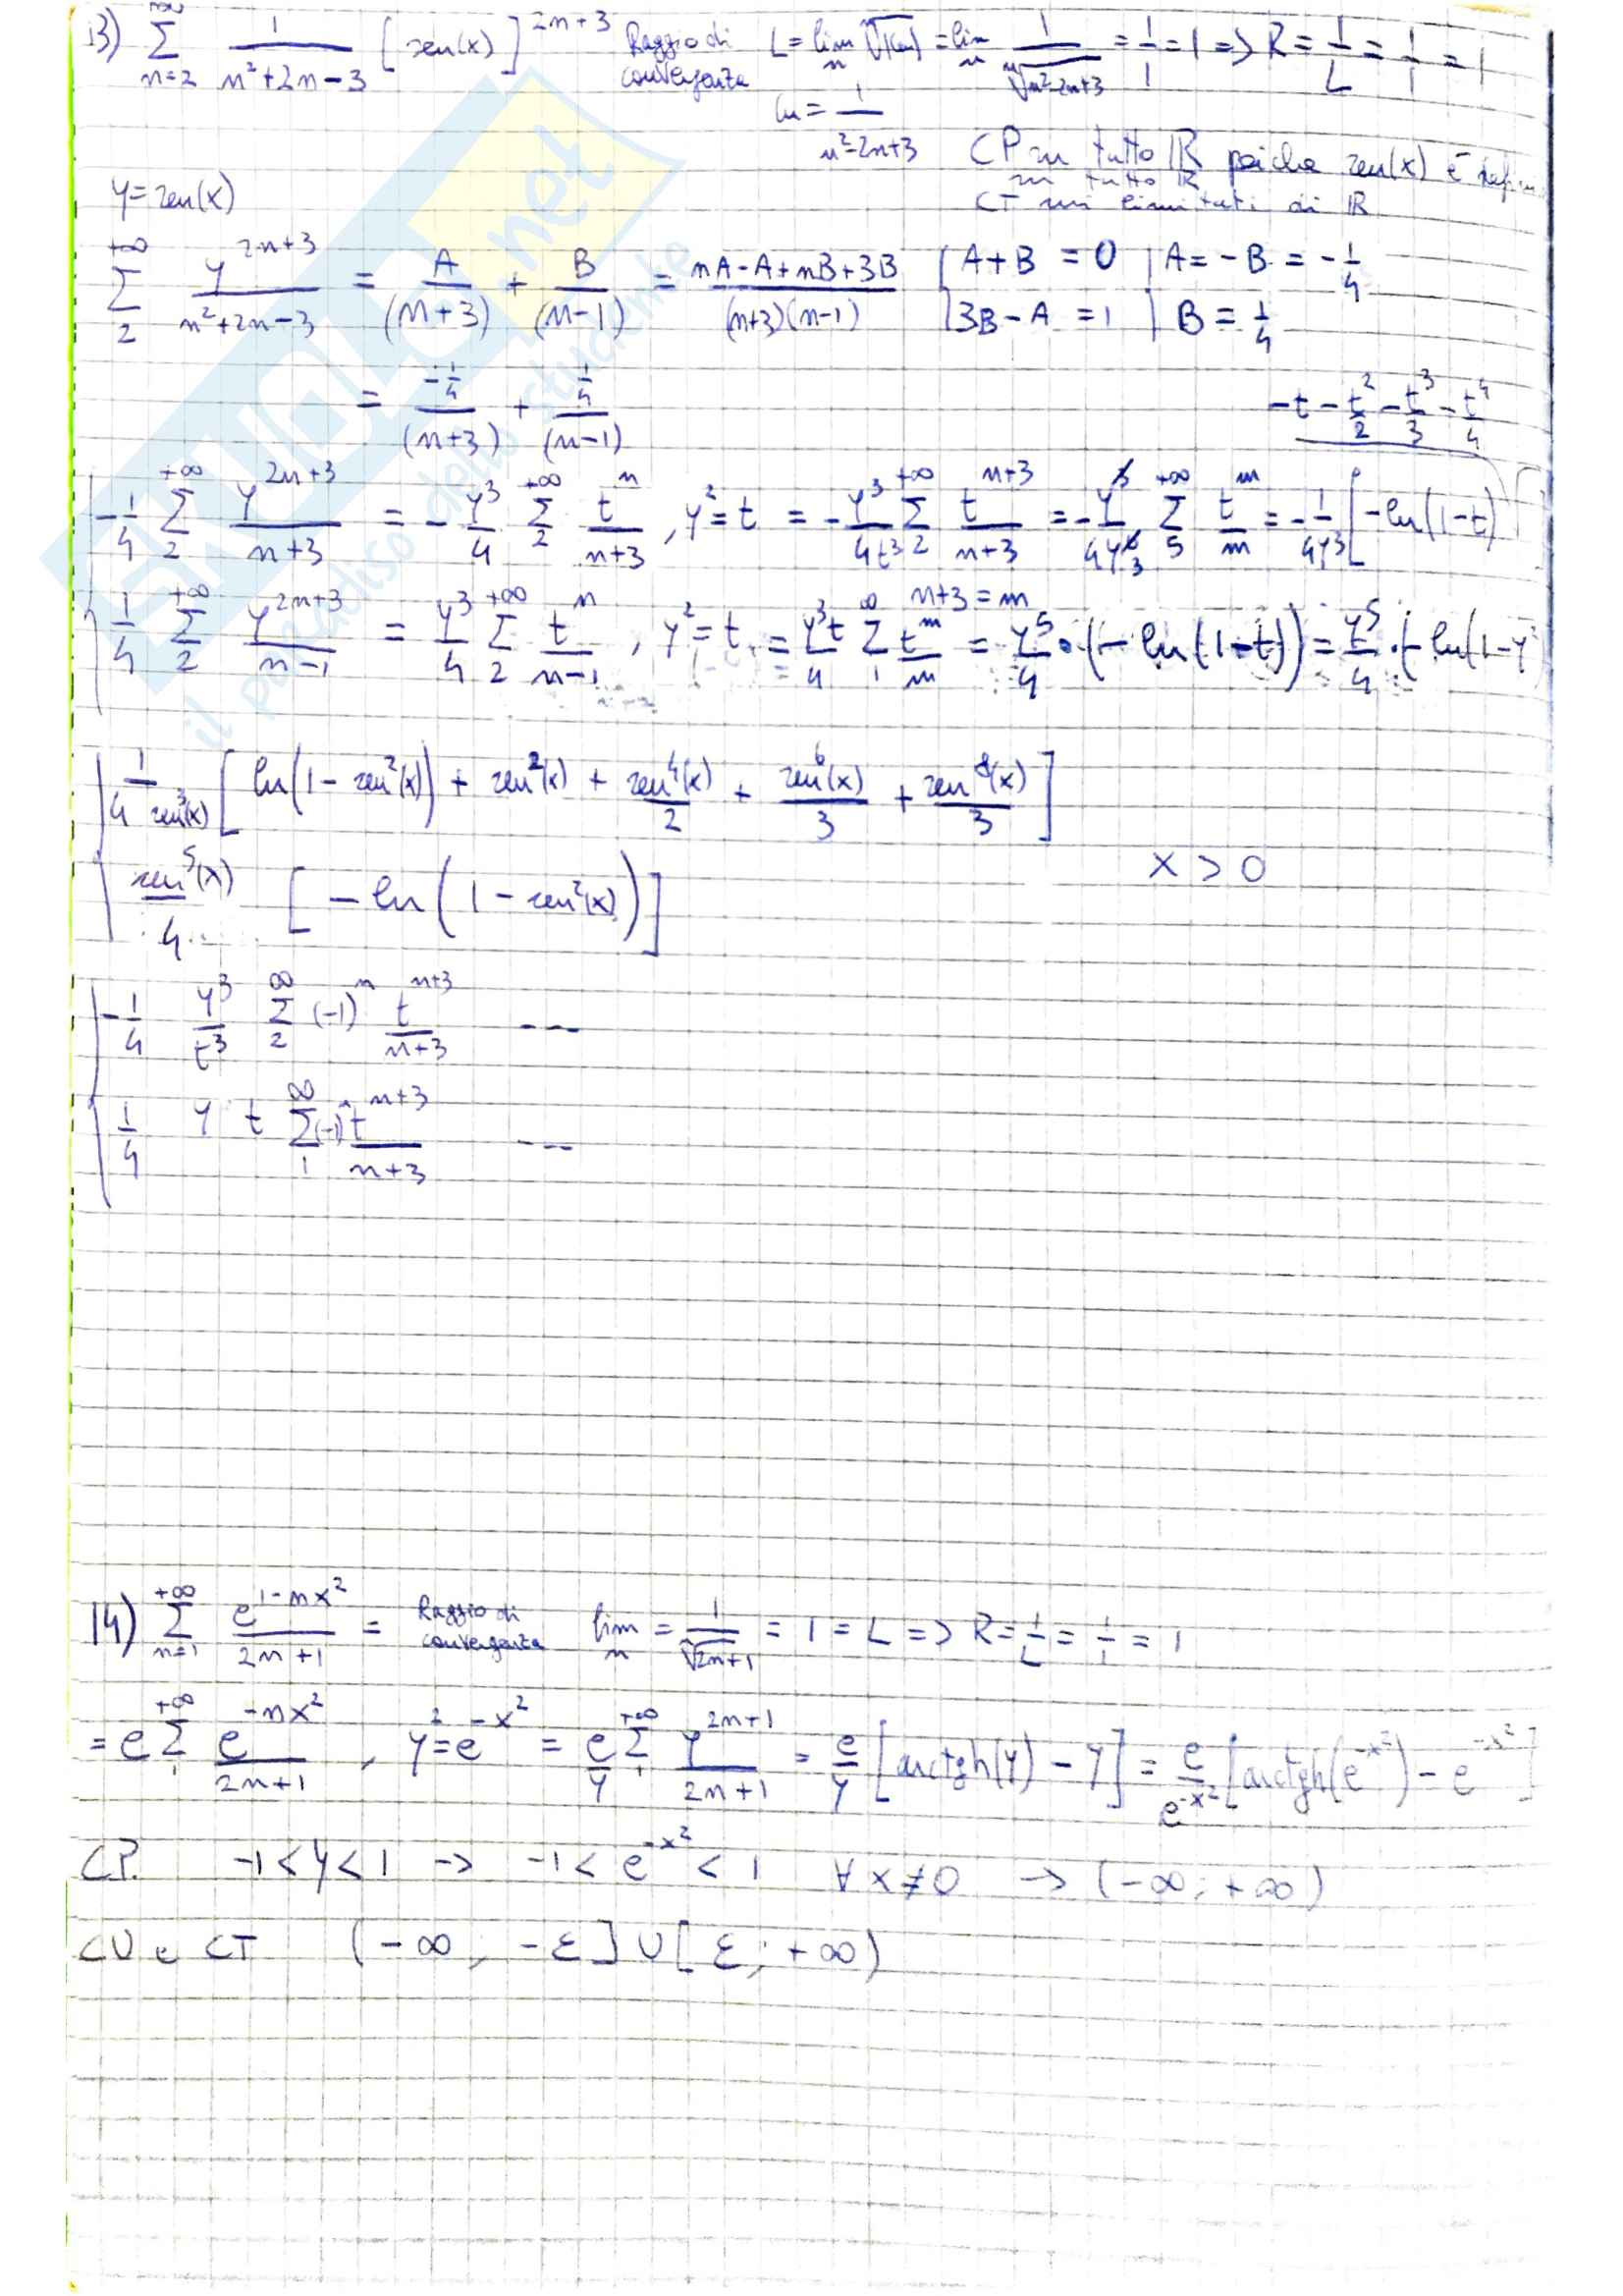 13) +∞ Σ n=2 1/(n²+2n-3) [sen(x)]^(2n+3) Raggio di convergenza L = lim n ⁿ√|an| = lim n 1/ⁿ√(n²-2n+3) = 1/1 = 1 => R = 1/L = 1/1 = 1
an = 1/(n²-2n+3)
CP su tutto IR poiché sen(x) è
su tutto IR
y = sen(x)
CT su limitati di IR
+∞ Σ 2 y^(2n+3)/(n²+2n-3) = A/(n+3) + B/(n-1) = (nA-A+nB+3B)/((n+3)(n-1)) { A+B = 0 | A = -B = -1/4
3B-A = 1 | B = 1/4
= (-1/4)/(n+3) + (1/4)/(n-1)
-t - t²/2 - t³/3 - t⁴/4
-1/4 +∞ Σ 2 y^(2n+3)/(n+3) = -y³/4 +∞ Σ 2 t^n/(n+3) , y² = t = -y³/(4t³) +∞ Σ 2 t^(n+3)/(n+3) = -y³/(4y⁶) +∞ Σ 5 t^m/m = -1/(4y³) [-ln(1-t)
n+3 = m
1/4 +∞ Σ 2 y^(2n+3)/(n-1) = y³/4 +∞ Σ 2 t^n/(n-1) , y² = t = y³t/4 ∞ Σ 1 t^m/m = y⁵/4 · (-ln(1-t)) = y⁵/4 · (-ln(1-y²
1/(4 sen³(x)) [ ln(1-sen²(x)) + sen²(x) + sen⁴(x)/2 + sen⁶(x)/3 + sen⁸(x)/3 ]
x > 0
sen⁵(x)/4 [ -ln(1-sen²(x)) ]
-1/4 y³/t³ ∞ Σ 2 (-1)^n t^(n+3)/(n+3) ---
1/4 y t ∞ Σ 1 (-1)^n t^(n+3)/(n+3) ---
14) +∞ Σ n=1 e^(1-nx²)/(2n+1) = Raggio di convergenza lim n = 1/ⁿ√(2n+1) = 1 = L => R = 1/L = 1/1 = 1
= e +∞ Σ 1 e^(-nx²)/(2n+1) , y² = e^(-x²) = e/y +∞ Σ 1 y^(2n+1)/(2n+1) = e/y [arctgh(y) - y] = e/e^(-x²) [arctgh(e^(-x²)) - e^(-x²)]
C.P. -1 < y < 1 -> -1 < e^(-x²) < 1 ∀ x ≠ 0 -> (-∞; +∞)
CU e CT (-∞; -ε] U [ε; +∞)
SKUOLA.net
il paradiso dello studente